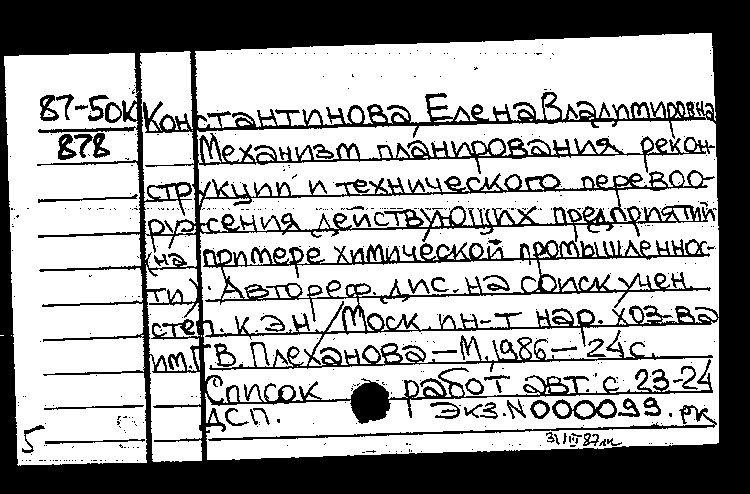 87-50к Константинова, Елена Владимировна
878 Механизм планирования рекон-
струкции и технического перевоо-
ружения действующих предприятий
(на примере химической промышленнос-
ти): Автореф. дис. на соиск. учен.
степ. к.э.н. / Моск. ин-т нар. хоз-ва
им. Г.В. Плеханова. — М., 1986. — 24 с.
Список работ авт. с. 23-24
ДСП. Экз. N 000099. рк
5